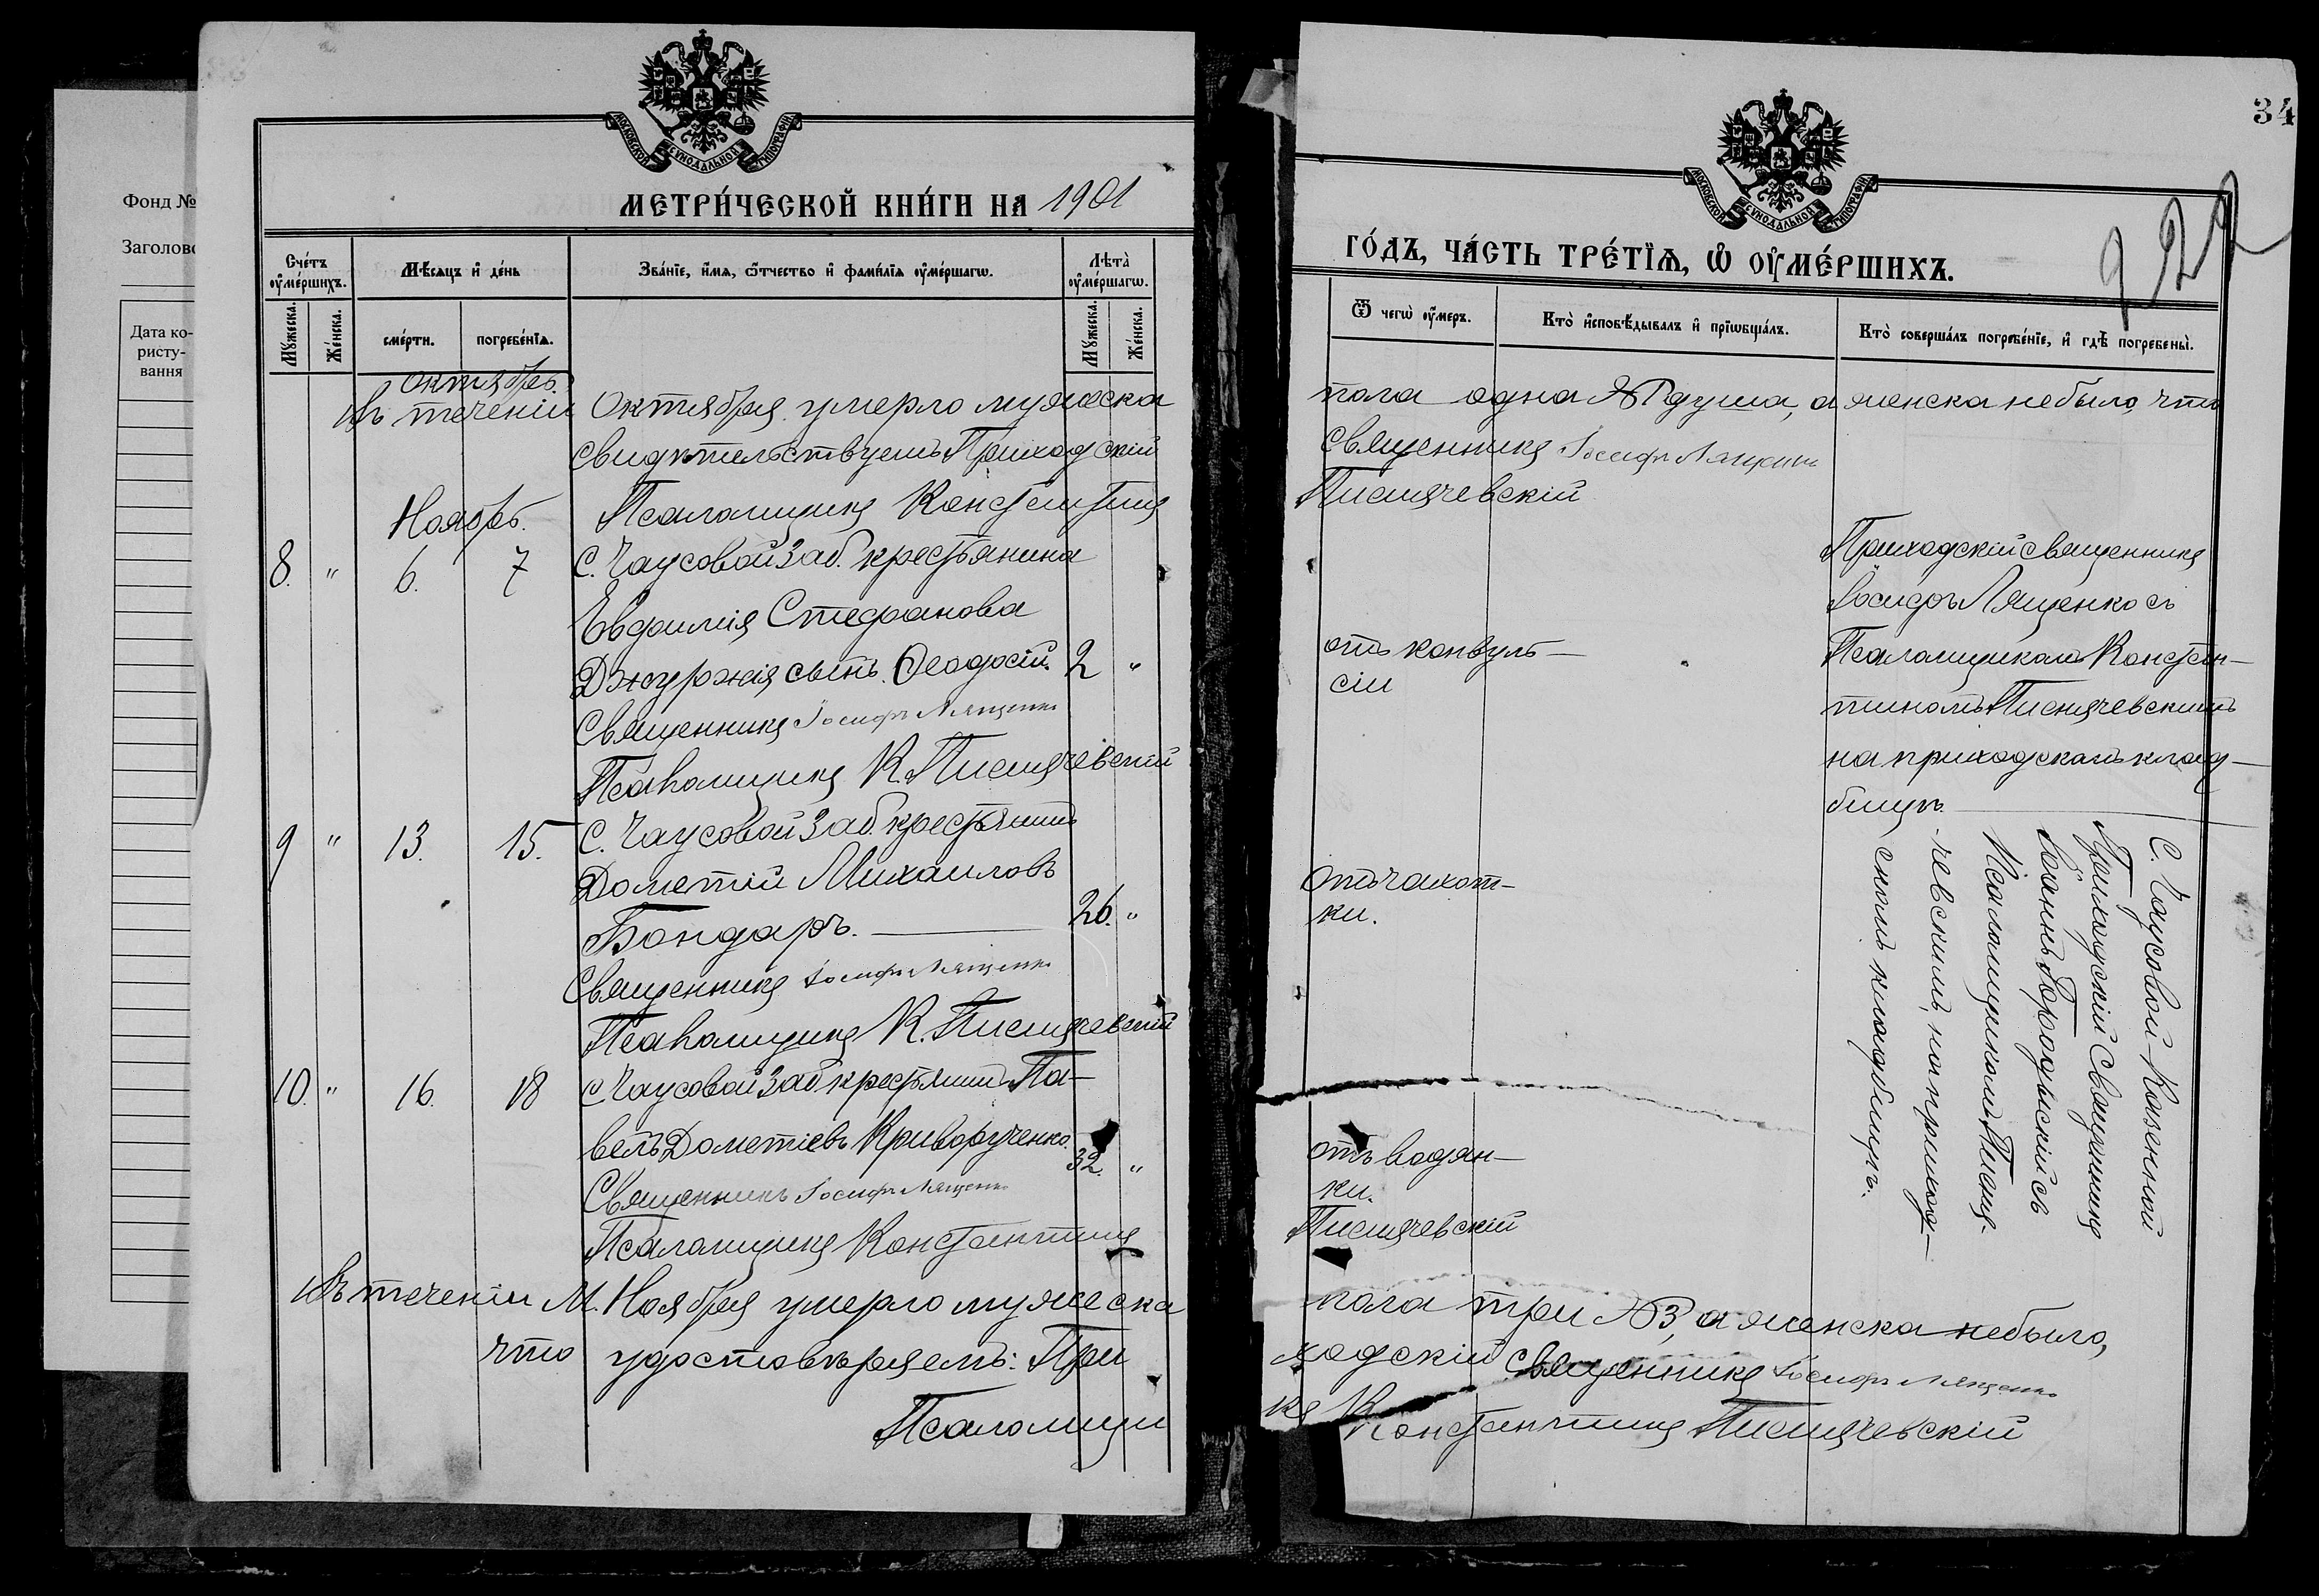 Фонд №
Заголово
Дата ко-
ристу-
вання
МОСКОВСКОЙ СУНОДАЛЬНОЙ ТИПОГРАФІИ
МЕТРИ́ЧЕСКОЙ КНИ́ГИ НА 1901
Сче́тъ ᲂу҆ме́ршихъ.
Мѣ́сяцъ и҆ де́нь
Зва́нїе, и҆́мѧ, ѻ҆́тчество и҆ фами́лїѧ ᲂу҆ме́ршагѡ.
Лѣ́та ᲂу҆ме́ршагѡ.
Мꙋ́жеска.
Же́нска.
сме́рти.
погребе́нїѧ.
Мꙋ́жеска.
Же́нска.
Октябрь.
Въ теченіи Октября умерло мужеска
свидѣтельствуемъ Приходскій
Псаломщикъ Константинъ
Ноябрь.
8. " 6. 7 С. Чаусовой Заб. крестьянина
Евфимія Стефанова
Джуржія сынъ Ѳеодосій. 2 "
Священникъ Іосифъ Лященко
Псаломщикъ К. Писнячевскій
9 " 13. 15. С. Чаусовой Заб. крестьянинъ
Дометій Михаиловъ
Бондаръ. 26. "
Священникъ Іосифъ Лященко
Псаломщикъ К. Писнячевскій
10. " 16. 18 с. Чаусовой Заб крестьянинъ Па-
велъ Дометіевъ Криворученко. 32. "
Священникъ Іосифъ Лященко
Псаломщикъ Константинъ
Въ теченіи М. Ноября умерло мужеска
что удостовѣряемъ: При
Псаломщи
34
МОСКОВСКОЙ СУНОДАЛЬНОЙ ТИПОГРАФІИ
ГО́ДЪ, ЧА́СТЬ ТРЕ́ТЇѦ, Ѡ҆ ОУ҆МЕ́РШИХЪ.
922
Ѿ чегѡ̀ ᲂу҆́меръ.
Кто̀ и҆сповѣ́дывалъ и҆ прїѡбща́лъ.
Кто̀ соверша́лъ погребе́нїе, и҆ гдѣ̀ погребены̀.
пола одна №1 душа, а женска небыло, что
Священникъ Іосифъ Лященко
Писнячевскій
Приходскій священникъ
Іосифъ Лященко съ
отъ конвуль-
сіи
Псаломщикомъ Констан-
тиномъ Писнячевскимъ
на приходскомъ клад-
бищѣ.
отъ чахот-
ки.
С. Чаусовой-Казенной
Приходскій Священникъ
Іоаннъ Городыскій съ
Псаломщикомъ Писня-
чевскимъ, на приход-
скомъ кладбищѣ.
отъ водян-
ки.
Писнячевскій
пола три №3, а женска небыло,
ходскій священникъ Іосифъ Лященко
къ К
Константинъ Писнячевскій